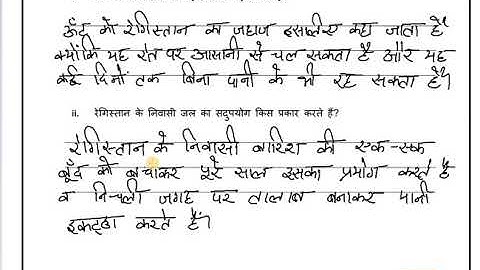 ऊँट को रेगिस्तान का जहाज इसलिए कहा जाता है
क्योंकि यह रेत पर आसानी से चल सकता है और यह
कई दिनों तक बिना पानी के भी रह सकता है।
ii. रेगिस्तान के निवासी जल का सदुपयोग किस प्रकार करते हैं?
रेगिस्तान के निवासी बारिश की एक-एक
बूँद को बचाकर पूरे साल इसका प्रयोग करते है
व निचली जगह पर तालाब बनाकर पानी
इकट्ठा करते हैं।